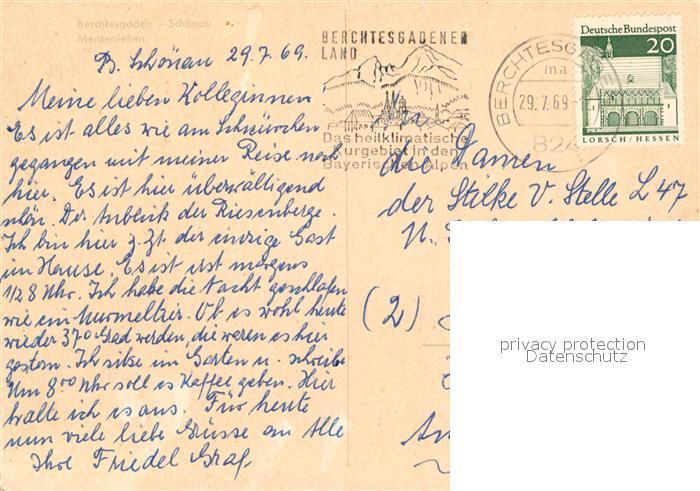 Berchtesgaden - Schönau
Mentenlehen
B. Schönau 29.7.69.
Meine lieben Kolleginnen
Es ist alles wie am Schnürchen
gegangen mit meiner Reise nach
hier. Es ist hier überwältigend
schön. Der Anblick der Riesenberge.
Ich bin hier z. Zt. der einzige Gast
im Hause. Es ist erst morgens
1/2 8 Uhr. Ich habe die Nacht geschlafen
wie ein Murmeltier. Ob es wohl heute
wieder 37 Grad werden, die waren es hier
gestern. Ich sitze im Garten u. schreibe
Um 8 00 Uhr soll es Kaffee geben. Hier
halte ich es aus. Für heute
nun viele liebe Grüsse an Alle
Ihre Friedel Graf
BERCHTESGADENER
LAND
Das heilklimatische
Kurgebiet in den
Bayerischen Alpen
BERCHTESGA
29.7.69
824
Deutsche Bundespost
20
LORSCH / HESSEN
die Damen
der Stilke V. Stelle L 47
(2)
privacy protection
Datenschutz